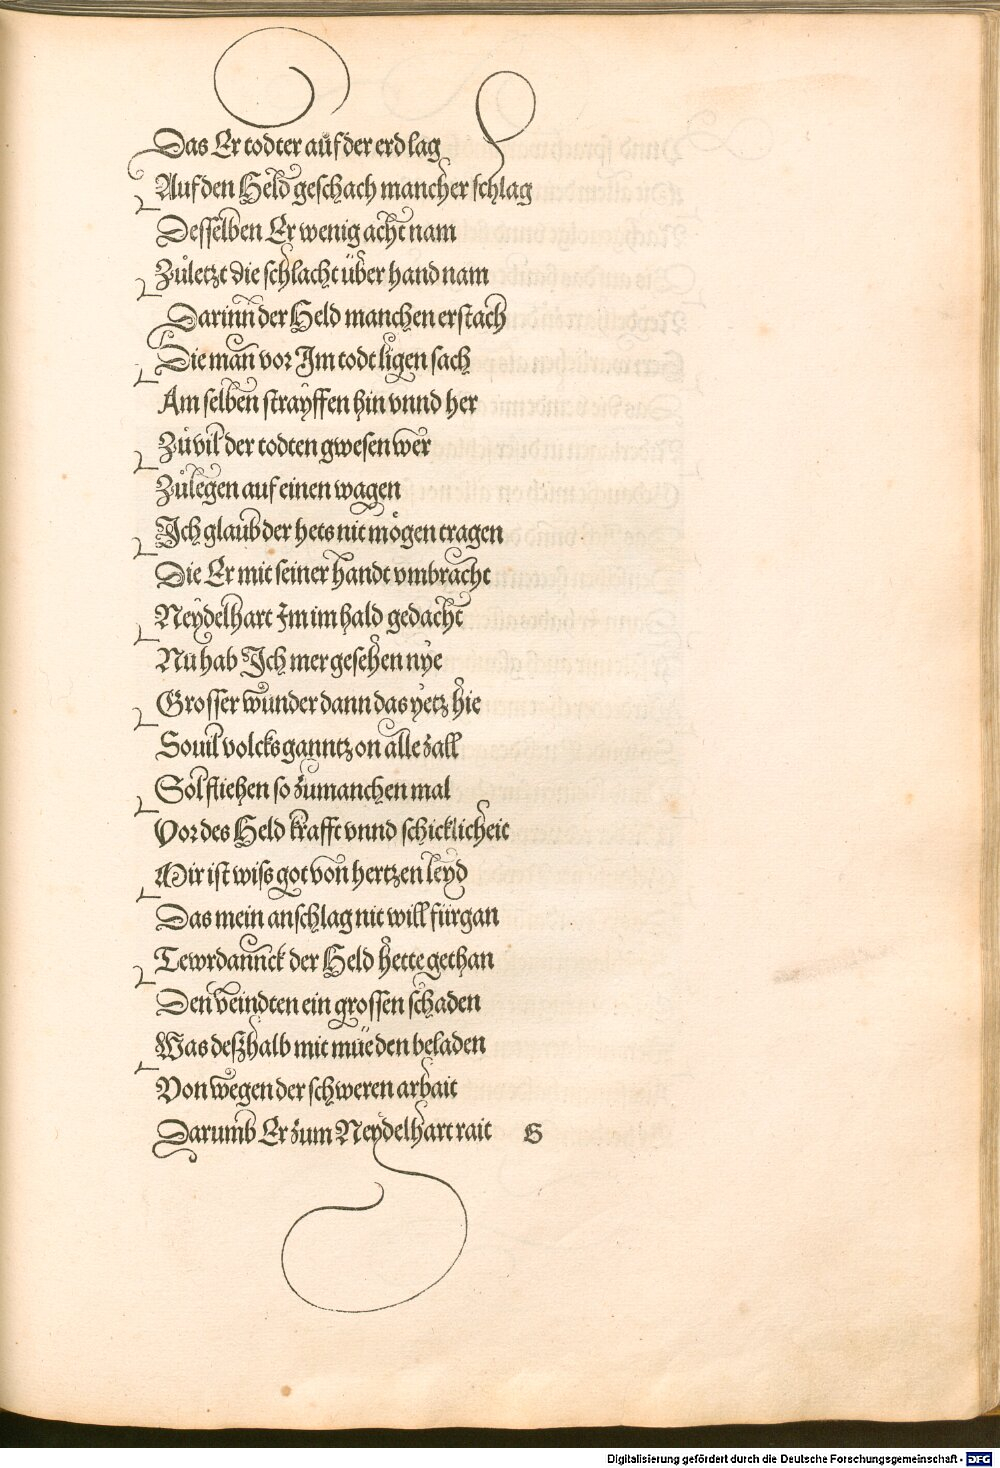 Das Er todter auf der erd lag
Auf den Held geschach mancher schlag
Desselben Er wenig acht nam
Zůletzt die schlacht über hand nam
Darinn der Held manchen erstach
Die man vor Im todt ligen sach
Am selben strayffen hin vnnd her
Zůvil der todten gwesen wer
Zůlegen auf einen wagen
Ich glaub der hets nit mögen tragen
Die Er mit seiner handt vmbracht
Neydelhart Im im bald gedacht
Nu hab Ich mer gesehen nye
Grosser wunder dann das yetz hie
Souil volcks ganntz on alle zall
Sol fliehen so zu manchen mal
Vor des Held krafft vnnd schicklicheit
Mir ist wiss got von hertzen leyd
Das mein anschlag nit will fürgan
Tewrdannck der Held hette gethan
Den veindten ein grossen schaden
Was deßhalb mit müe den beladen
Von wegen der schweren arbait
Darumb Er zum Neydelhart rait G
Digitalisierung gefördert durch die Deutsche Forschungsgemeinschaft - DFG